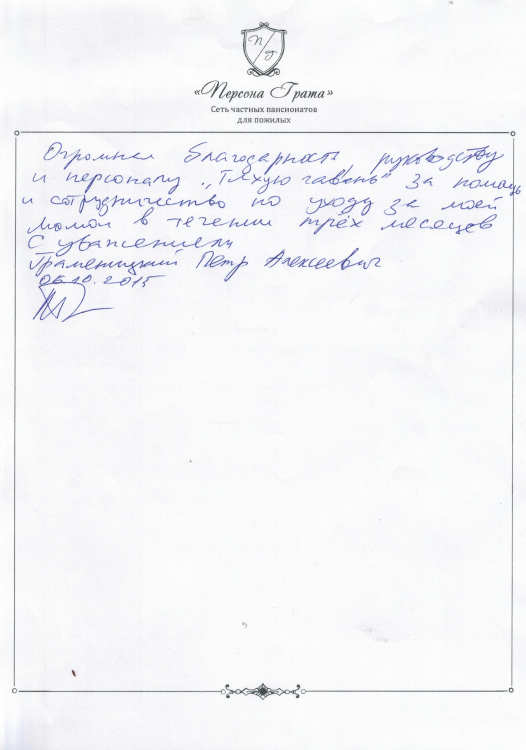 П
Г
«Персона Грата»
Сеть частных пансионатов
для пожилых
Огромная благодарность руководству
и персоналу „Тихую гавань" за помощь
и сотрудничество по уходу за моей
мамой в течении трёх месяцев
С уважением
Петр Алексеевич
06.10.2015